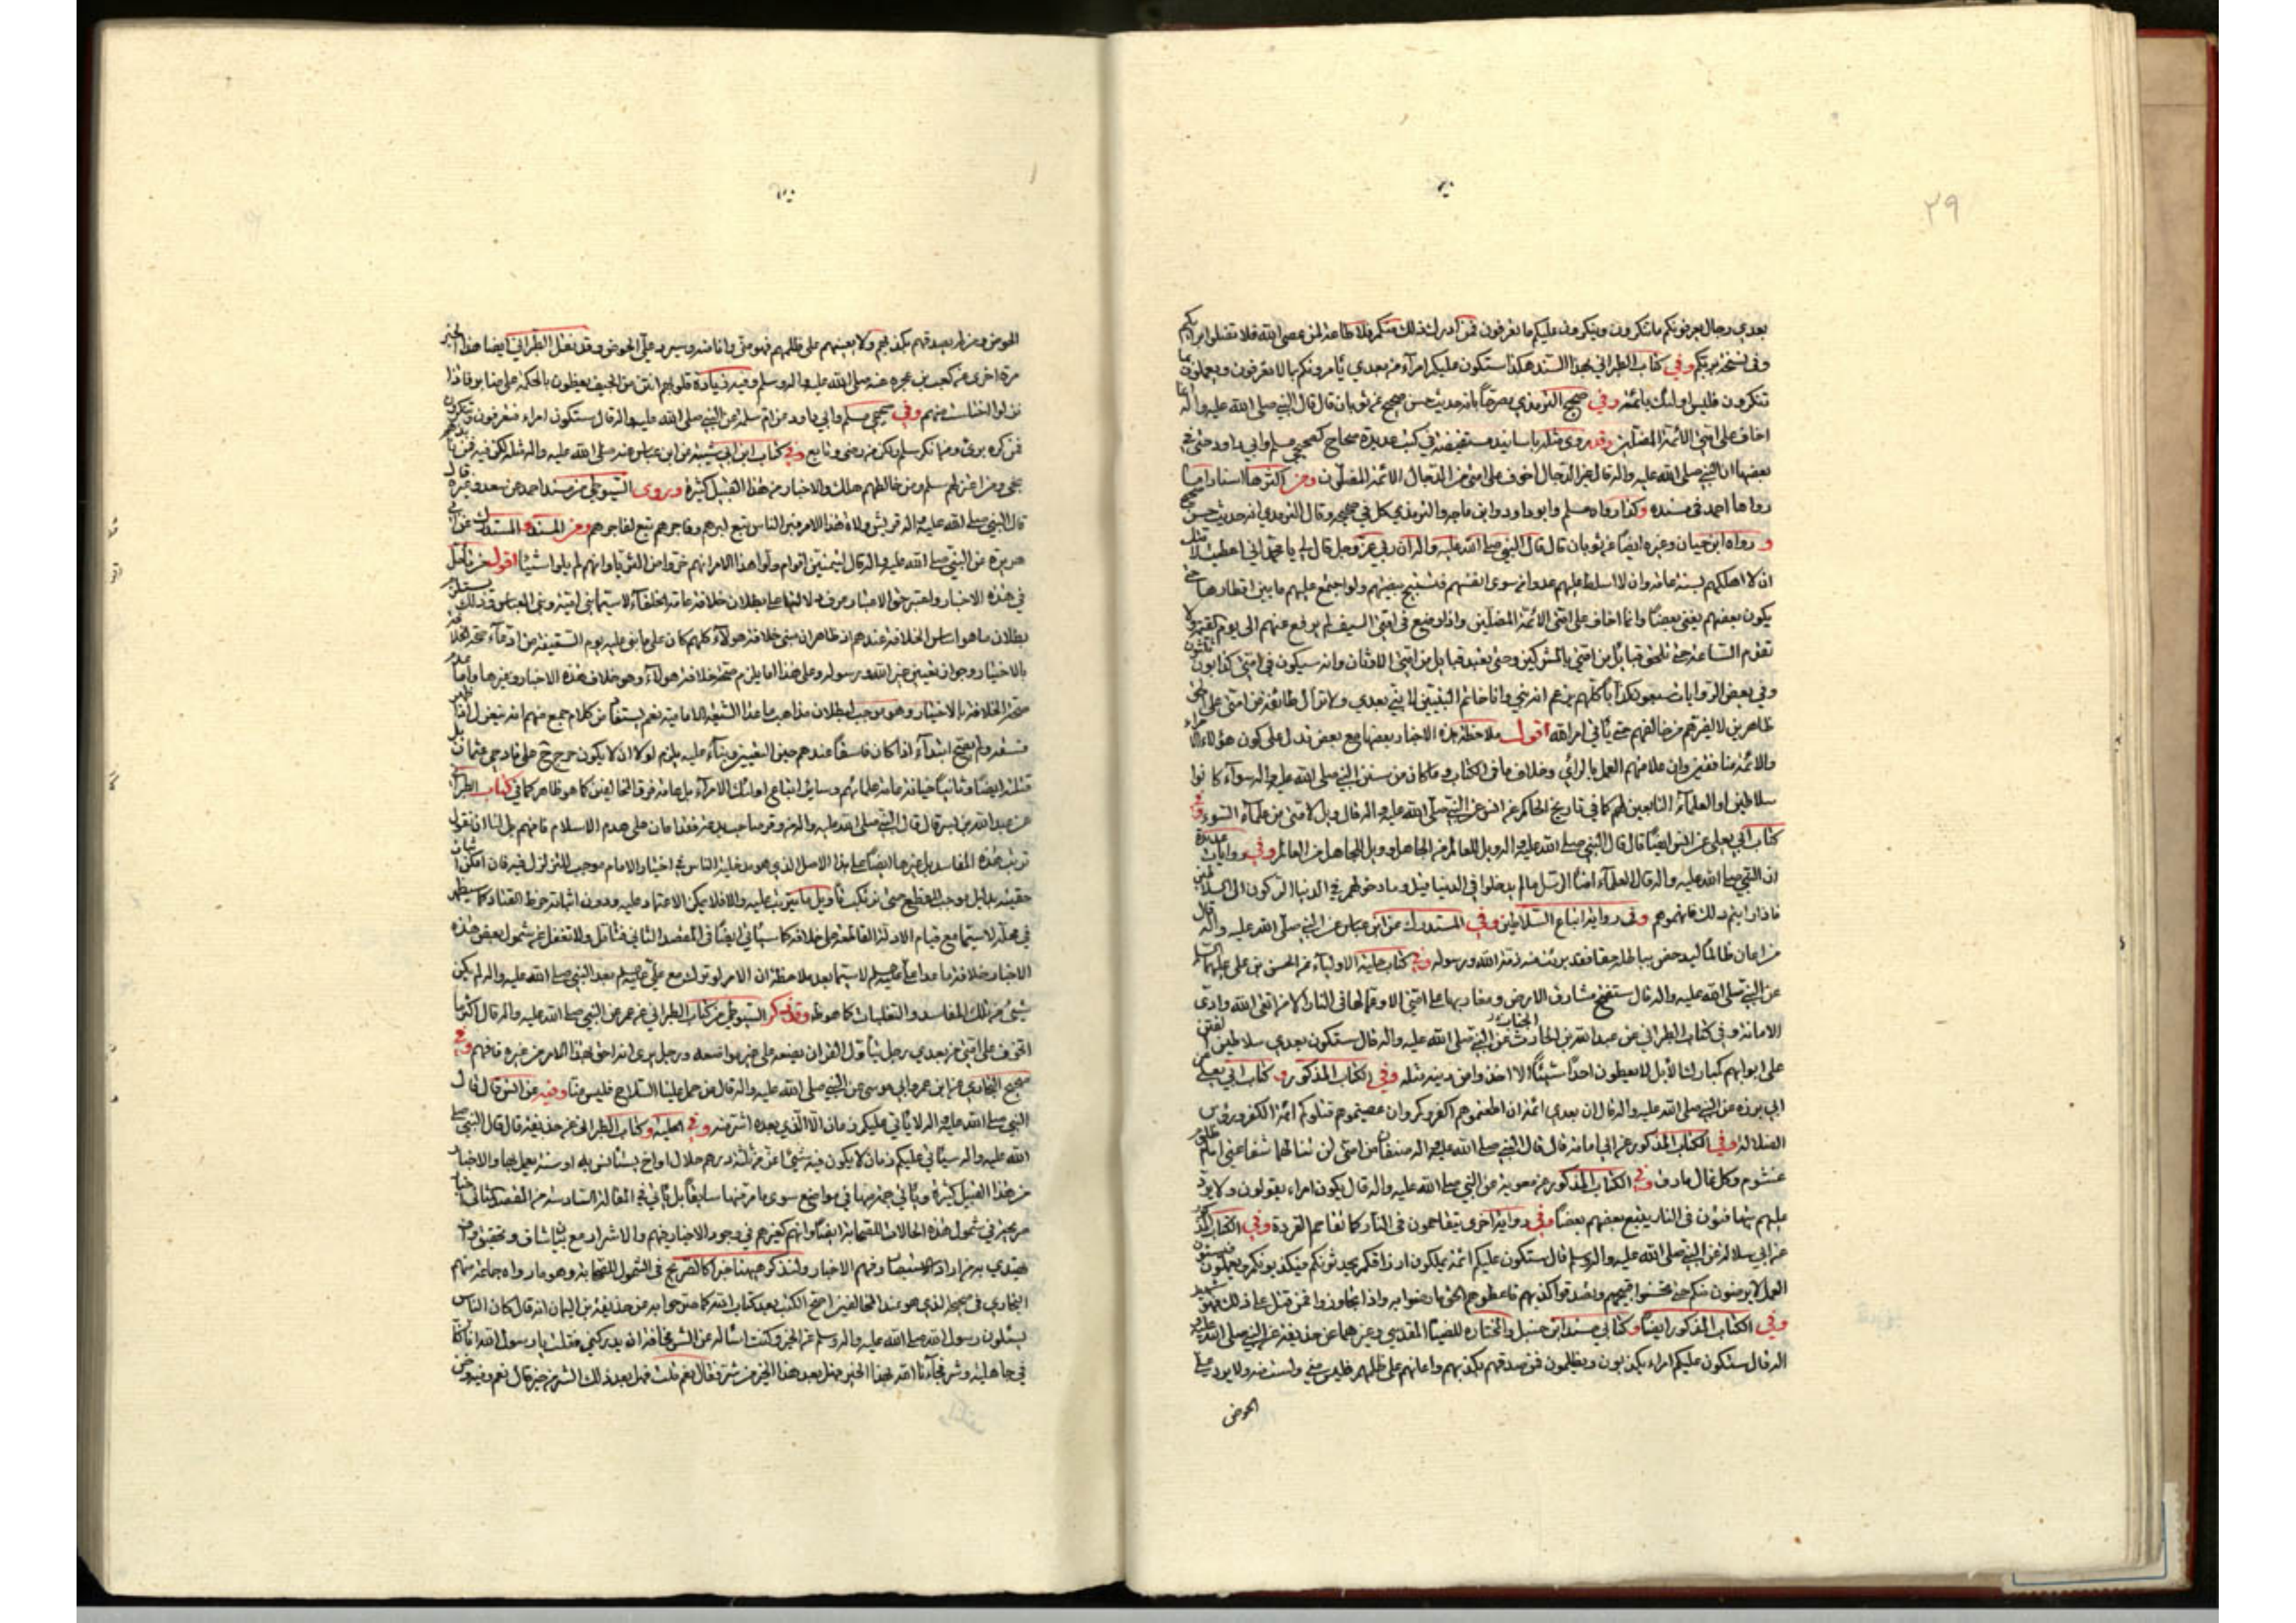 ٢٩
بعدي رجال يعرفونكم ما تنكرون وينكرون عليكم ما تعرفون فمن ادرك ذلك منكم فلا طاعة لمن عصى الله فلا تضلوا بربكم
وفي نسخة بربكم وفي كتاب الطبراني بهذا السند هكذا ستكون عليكم امرآء من بعدي يأمرونكم بما لا تعرفون ويعملون بما
تنكرون فليس اولئك بائمة وفي صحيح الترمذي مصرحاً بانه حديث حسن صحيح عن ثوبان قال قال النبي صلى الله عليه واله انما
اخاف على امتي الائمة المضلين وقد روى مثله باسانيد مستفيضة في كتب عديدة صحاح كصحيحي مسلم وابي داود حتى في
بعضها ان النبي صلى الله عليه واله قال غير الدجال اخوف على امتي من الدجال الائمة المضلون ومن اكثرها اسنادا ما
رواها احمد في مسنده وكذا رواه مسلم وابو داود وابن ماجه والترمذي كل في صحيحه وقال الترمذي انه حديث حسن صحيح
و رواه ابن حبان وغيره ايضاً عن ثوبان قال قال النبي صلى الله عليه واله ان ربي عز وجل قال لي يا محمد اني اعطيت لامتك
ان لا اهلكهم بسنة عامة وان لا اسلط عليهم عدوا من سوى انفسهم فيستبيح بيضتهم ولو اجتمع عليهم ما بين اقطارها حتى
يكون بعضهم يفني بعضاً وانما اخاف على امتي الائمة المضلين واذا وضع في امتي السيف لم يرفع عنهم الى يوم القيمة ولا
تقوم الساعة حتى تلحق قبائل من امتي بالمشركين وحتى يعبد قبايل من امتي الاوثان وانه سيكون في امتي كذابون ثلثون
وفي بعض الروايات سبعون كذاباً كلهم يزعم انه نبي وانا خاتم النبيين لا نبي بعدي ولا تزال طائفة من امتي على الحق
ظاهرين لا يضرهم من خالفهم حتى يأتي امر الله اقول ملاحظة هذه الاخبار بعضها مع بعض تدل على كون هؤلاء الامراء
والائمة منافقين وان علامتهم العمل بالرأي وخلاف ما في الكتاب وما كان من سنن النبي صلى الله عليه واله سوآء كانوا
سلاطين او العلمآء التابعين لهم كما في تاريخ الحاكم عن انس عن النبي صلى الله عليه واله قال ويل لامتي من علمآء السوء وفي
كتاب ابي يعلى عن انس ايضاً قال قال النبي صلى الله عليه واله ويل للعالم من الجاهل وويل للجاهل من العالم وفي روايات عديدة
ان النبي صلى الله عليه واله قال العلمآء امنآء الرسل ما لم يدخلوا في الدنيا قيل وما دخولهم في الدنيا الركون الى السلاطين
فاذا رايتم ذلك فاتهموهم وفي رواية اتباع السلاطين وفي المستدرك عن ابن عباس عن النبي صلى الله عليه واله قال
من اعان ظالماً ليدحض بباطله حقا فقد برئت منه ذمة الله ورسوله وفي كتاب حلية الاوليآء عن الحسن بن علي عليهما السلم
عن النبي صلى الله عليه واله قال ستفتح مشارق الارض ومغاربها على امتي الا وعمالها في النار الا من اتقى الله وادى
الامانة وفي كتاب الطبراني عن عبد الله بن الحارث عن النبي صلى الله عليه واله قال ستكون بعدي سلاطين الفتن
على ابوابهم كمبارك الابل لا يعطون احداً شيئاً الا اخذوا من دينه مثله وفي الكتاب المذكور و كتاب ابي يعلى عن
ابي برزه عن النبي صلى الله عليه واله قال ان بعدي ائمة ان اطعتموهم اكفروكم وان عصيتموهم قتلوكم ائمة الكفر ورؤس
الضلالة وفي الكتاب المذكور عن ابي امامة قال قال النبي صلى الله عليه واله صنفان من امتي لن تنالهما شفاعتي امام ظلوم
غشوم وكل غال مارق وفي الكتاب المذكور عن معوية عن النبي صلى الله عليه واله قال يكون امراء يقولون ولا يرد
عليهم يتهافتون في النار يتبع بعضهم بعضاً وفي رواية اخرى يتقاحمون في النار كما تقاحم القردة وفي الكتاب المذكور
عن ابي سلالة عن النبي صلى الله عليه واله وسلم قال ستكون عليكم ائمة يملكون ارزاقكم يحدثونكم فيكذبونكم ويعملون فيسيئون
العمل لا يرضون منكم حتى تحسنوا قبيحهم وتصدقوا كذبهم فاعطوهم الحق ما رضوا به واذا تجاوزوا فمن قتل على ذلك فهو شهيد
وفي الكتاب المذكور ايضاً وكتابي مسند ابن حنبل والمختاره للضيآء المقدسي وغيرهما عن حذيفة عن النبي صلى الله عليه و
اله قال ستكون عليكم امراء يكذبون ويظلمون فمن صدقهم بكذبهم واعانهم على ظلمهم فليس مني ولست منه ولا يرد علي
الحوض
الحوض ومن لم يصدقهم بكذبهم ولا يعينهم على ظلمهم فهو مني وانا منه وسيرد علي الحوض وقد نقل الطبراني ايضا هذا الخبر
مرة اخرى عن كعب بن عجره عنه صلى الله عليه واله وسلم وفيه زيادة قلوبهم انتن من الجيف يعظون بالحكمة على منابر فاذا
نزلوا اختلست منهم وفي صحيحي مسلم وابي داود عن ام سلمة عن النبي صلى الله عليه واله قال ستكون امراء فتعرفون وتنكرون
فمن كره برئ ومن انكر سلم ولكن من رضي وتابع وفي كتاب ابن ابي شيبة عن ابن عباس عنه صلى الله عليه واله مثله لكن فيه فمن نابذهم
نجى ومن اعتزلهم سلم ومن خالطهم هلك والاخبار من هذا القبيل كثيرة ويروى السيوطي من مسند احمد عن سعد وغيره قال
قال النبي صلى الله عليه واله قريش ولاة هذا الامر فبر الناس تبع لبرهم وفاجرهم تبع لفاجرهم ومن المسند و المستدرك عن ابي
هريرة عن النبي صلى الله عليه واله قال ليتمنين اقوام ولوا هذا الامر انهم خروا من الثريا وانهم لم يلوا شيئاً اقول من تأمل
في هذه الاخبار واعتبر حق الاعتبار عرف دلالتها على بطلان خلافة عامة الخلفآء لا سيما بني امية وبني العباس وذلك يستلزم
بطلان ما هو اساس الخلافة عندهم اذ ظاهر ان مبنى خلافة هؤلآء كلهم كان على ما بني عليه يوم السقيفة من ادعآء صحة الخلافة
بالاختيار وجواز تعيين غير الله ورسوله وعلى هذا اما يلزم صحة خلافة هؤلآء وهو خلاف هذه الاخبار وغيرها واما عدم
صحة الخلافة بالاختيار وهو موجب لبطلان مذاهب ما عدا الشيعة الامامية نعم يستفاد من كلام جمع منهم انه ينعزل
بفسقه ولم يصح ابتدآء اذا كان فاسقاً عندهم حين التعيين وبنآء عليه يلزم اولا ان لا يكون حرج ح على قادحي عثمان بل
قتلته ايضاً وثانياً خيانة عامة علمائهم وسائر اتباع اولئك الامرآء بل عامة فرق المخالفين كما هو ظاهر كما في كتاب الطبراني
عن عبد الله بن بسر قال قال النبي صلى الله عليه واله من وقر صاحب بدعة فقد اعان على هدم الاسلام فافهم بل لنا ان نقول
ترتب هذه المفاسد بل غيرها ايضاً على هذا الاصل الذي هو مدخلية الناس في اختيار الامام موجب للتزلزل فيه فان امكن اثبات
حقيته بدليل يوجب القطع حتى نرتكب تأويل ما يترتب عليه والا فلا يمكن الاعتماد عليه ودون اثباته خرط القتاد كما سيظهر
في محله لا سيما مع قيام الادلة القاطعة على خلافه كما سيأتي ايضاً في المقصد الثاني فتأمل ولا تغفل عن شمول بعض هذه
الاخبار خلافة ما عدا علي عليه السلم لا سيما بعد ملاحظة ان الامر لو ترك مع علي عليه السلم بعد النبي صلى الله عليه واله لم يكن
شيئ من تلك المفاسد والتغلبات كما هو ظ وقد ذكر السيوطي من كتاب الطبراني عن عمر عن النبي صلى الله عليه واله قال اكثر ما
اتخوف على امتي من بعدي رجل يتأول القرآن يضعه على غير مواضعه ورجل يرى انه احق بهذا الامر من غيره فافهم وفي
صحيح البخاري عن ابن عمر وابي موسى عن النبي صلى الله عليه واله قال من حمل علينا السلاح فليس منا وفيه عن انس قال قال
النبي صلى الله عليه واله لا يأتي عليكم زمان الا الذي بعده اشر منه وفي الحلية و كتاب الطبراني عن حذيفة قال قال النبي صلى
الله عليه واله سيأتي عليكم زمان لا يكون فيه شئ اعز من ثلثة درهم حلال او اخ يستأنس به او سنة يعمل بها والاخبار
من هذا القبيل كثيرة ويأتي جملة منها في مواضع سوى ما مر منها سابقاً بل يأتي في المقالة السادسة من المقصد الثاني
صريحة في شمول هذه الحالات للصحابة ايضاً وانهم كغيرهم في وجود الاخيار فيهم والاشرار مع بيان شاف وتحقيق واف
يهتدي به من اراد الاستبصار وفهم الاخبار ولنذكر ههنا خبراً كالصريح في الشمول للصحابة وهو ما رواه جماعة منهم
البخاري في صحيحه الذي هو عند المخالفين اصح الكتب بعد كتاب الله كما صرحوا به عن حذيفة بن اليمان انه قال كان الناس
يسئلون رسول الله صلى الله عليه واله وسلم عن الخير وكنت اسأله عن الشر مخافة ان يدركني فقلت يا رسول الله انا كنا
في جاهلية وشر فجآءنا الله بهذا الخير فهل بعد هذا الخير من شر فقال نعم قلت فهل بعد ذلك الشر من خير قال نعم وفيه دخن